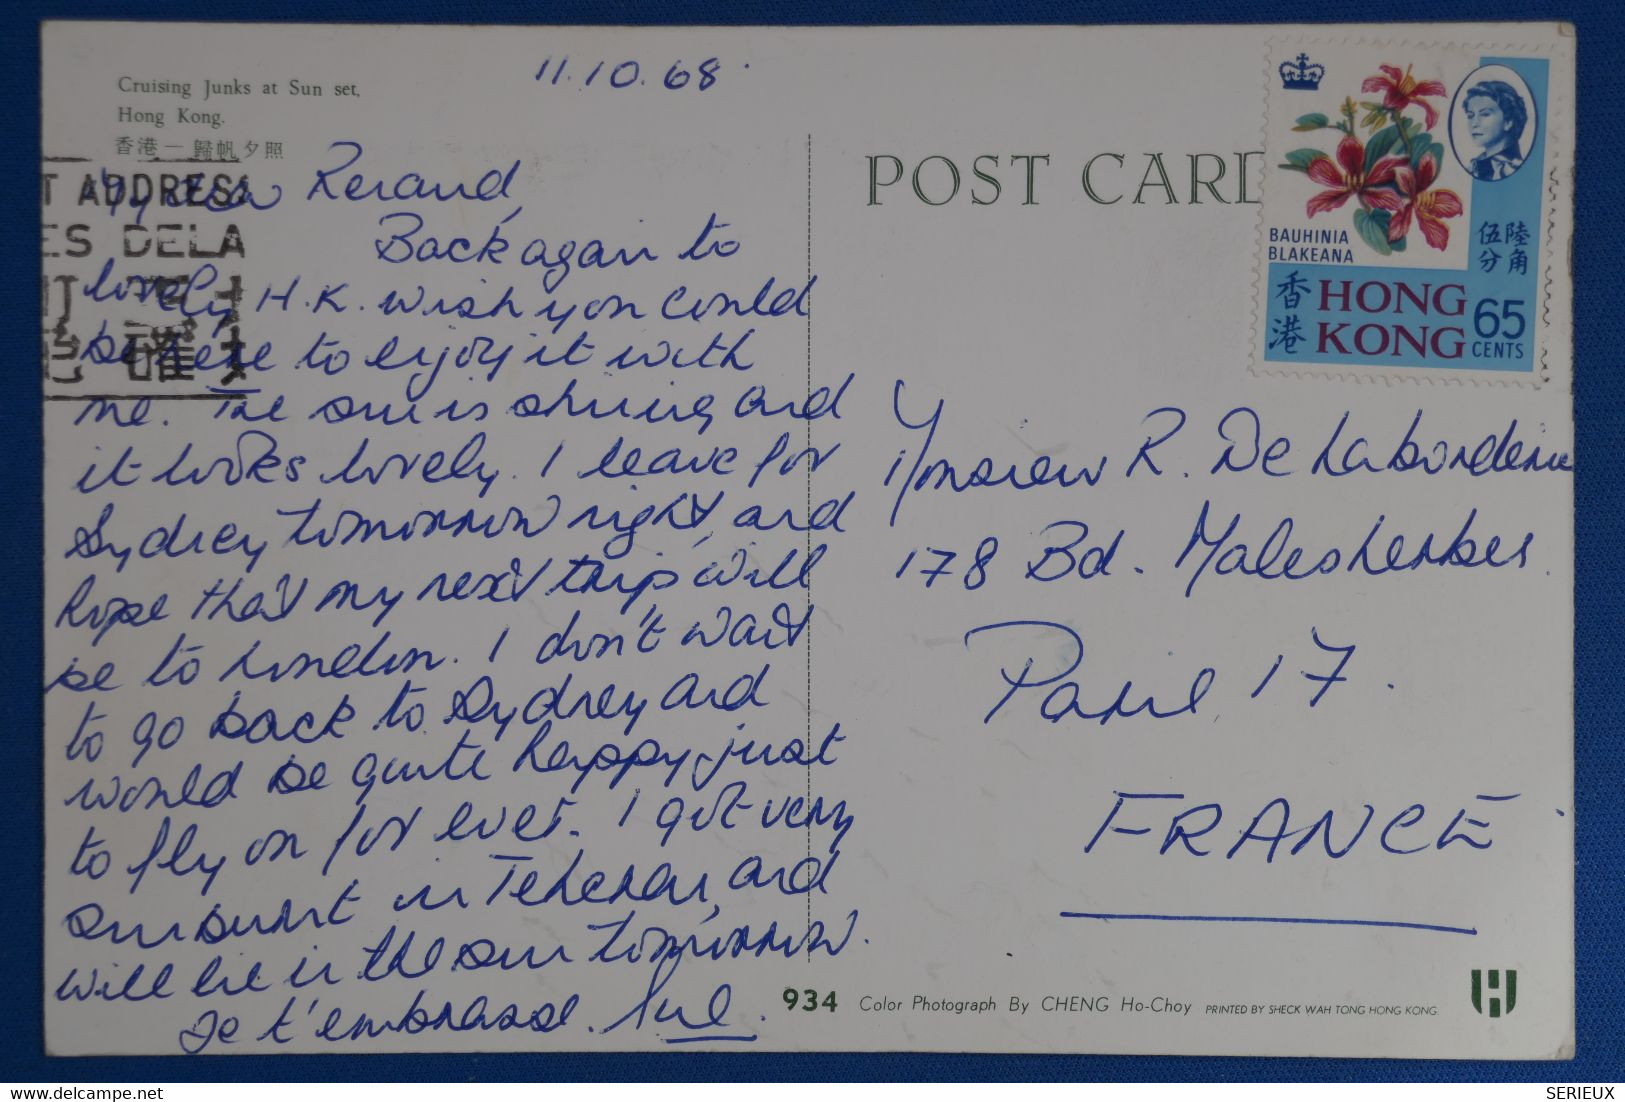 Cruising Junks at Sun set,
Hong Kong.
香港 — 歸帆夕照
11.10.68.
T ADDRESS
ES DELA
確
My dear Renaud,
Back again to
lovely H.K. wish you could
be here to enjoy it with
me. The sun is shining and
it looks lovely. I leave for
Sydney tomorrow night, and
hope that my next trip will
be to London. I don't want
to go back to Sydney and
would be quite happy just
to fly on for ever. I got very
sunburnt in Teheran, and
will lie in the sun tomorrow.
Je t'embrasse.
POST CARD
BAUHINIA
BLAKEANA
伍分 陸角
香港 HONG
KONG 65
CENTS
Monsieur R. De Laborderie
178 Bd. Malesherbes
Paris 17.
FRANCE
934 Color Photograph By CHENG Ho-Choy PRINTED BY SHECK WAH TONG HONG KONG.
SERIEUX